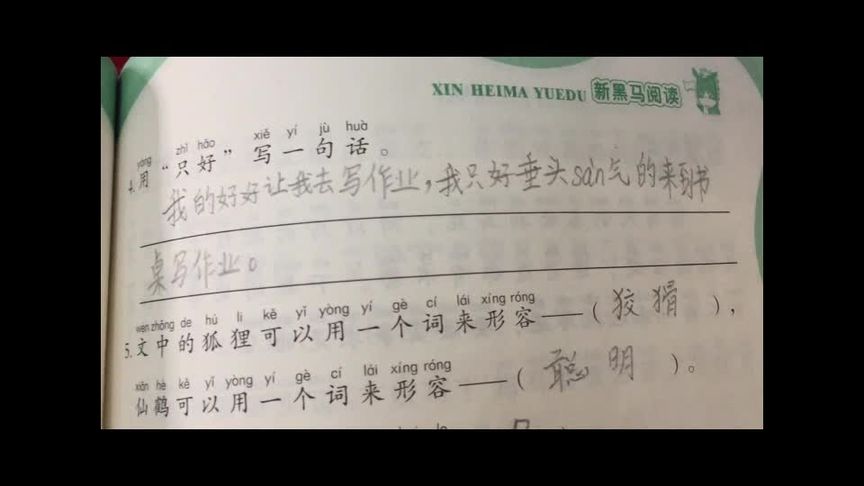 XIN HEIMA YUEDU 新黑马阅读
yòng zhǐ hǎo xiě yí jù huà
4.用“只好”写一句话。
我的好好让我去写作业,我只好垂头sàn气的来到书
桌写作业。
wén zhōng de hú li kě yǐ yòng yí gè cí lái xíng róng
5.文中的狐狸可以用一个词来形容——(狡猾),
xiān hè kě yǐ yòng yí gè cí lái xíng róng
仙鹤可以用一个词来形容——(聪明)。